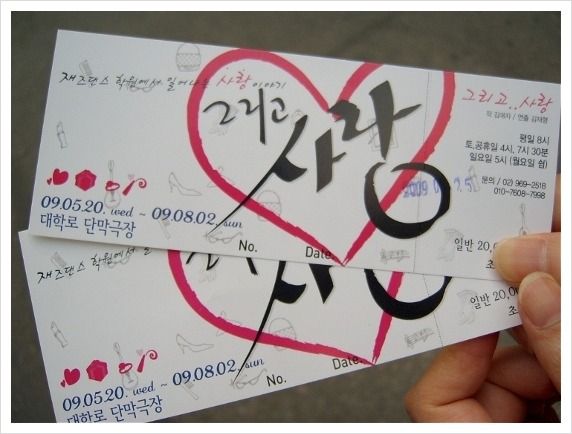 재즈댄스 학원에서 일어나는 사랑이야기
그리고 사랑
그리고.. 사랑
평일 8시
토,공휴일 4시, 7시 30분
일요일 5시 (월요일 쉼)
문의 / 02) 969-2518
010-7608-7998
09.05.20. wed ~ 09.08.02. sun
대학로 단막극장
No.
Date.
일반 20,00
초
재즈댄스 학원에서 일
사랑
09.05.20. wed ~ 09.08.02. sun
대학로 단막극장
No.
Date.
일반 20,00
초